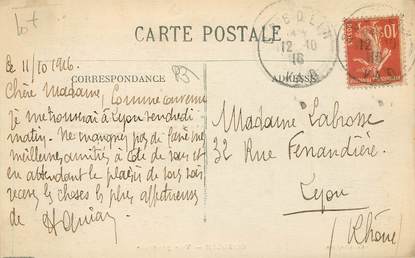 lot
CARTE POSTALE
Le 11/10 1916.
CORRESPONDANCE
ADRESSE
Chère Madame, Comme convenu
je me trouverai à Lyon vendredi
matin. Ne manquez pas de faire
meilleures amitiés à de vous et
en attendant le plaisir de vous voir
recevez les choses les plus affectueuses
de
Madame Labrosse
32 Rue Ferrandière
Lyon
(Rhône)
12-10
16
10